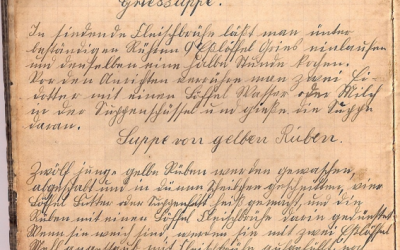 Griessuppe.
In siedende Fleischbrühe läßt man unter
beständigen Rühren 9 Eßlöffel Gries einlaufen
und denselben eine halbe Stunde kochen.
Vor den Anrichten verrühre man zwei Ei-
dotter mit einen Löffel Wasser oder Milch
in der Suppenschüssel und gieße die Suppe
daran.
Suppe von gelben Rüben.
Zwölf junge gelbe Rüben werden gewaschen,
abgeschabt und in dünne Scheiben geschnitten, vier
Löffel Butter oder Suppenfett heiß gemacht, und die
Rüben mit einen Löffel Fleischbrühe darin gedünstet
Wenn sie weich sind, werden sie mit zwei Eßlöffel
Mehl angestäubt mit Fleischbrühe aufgefüllt und